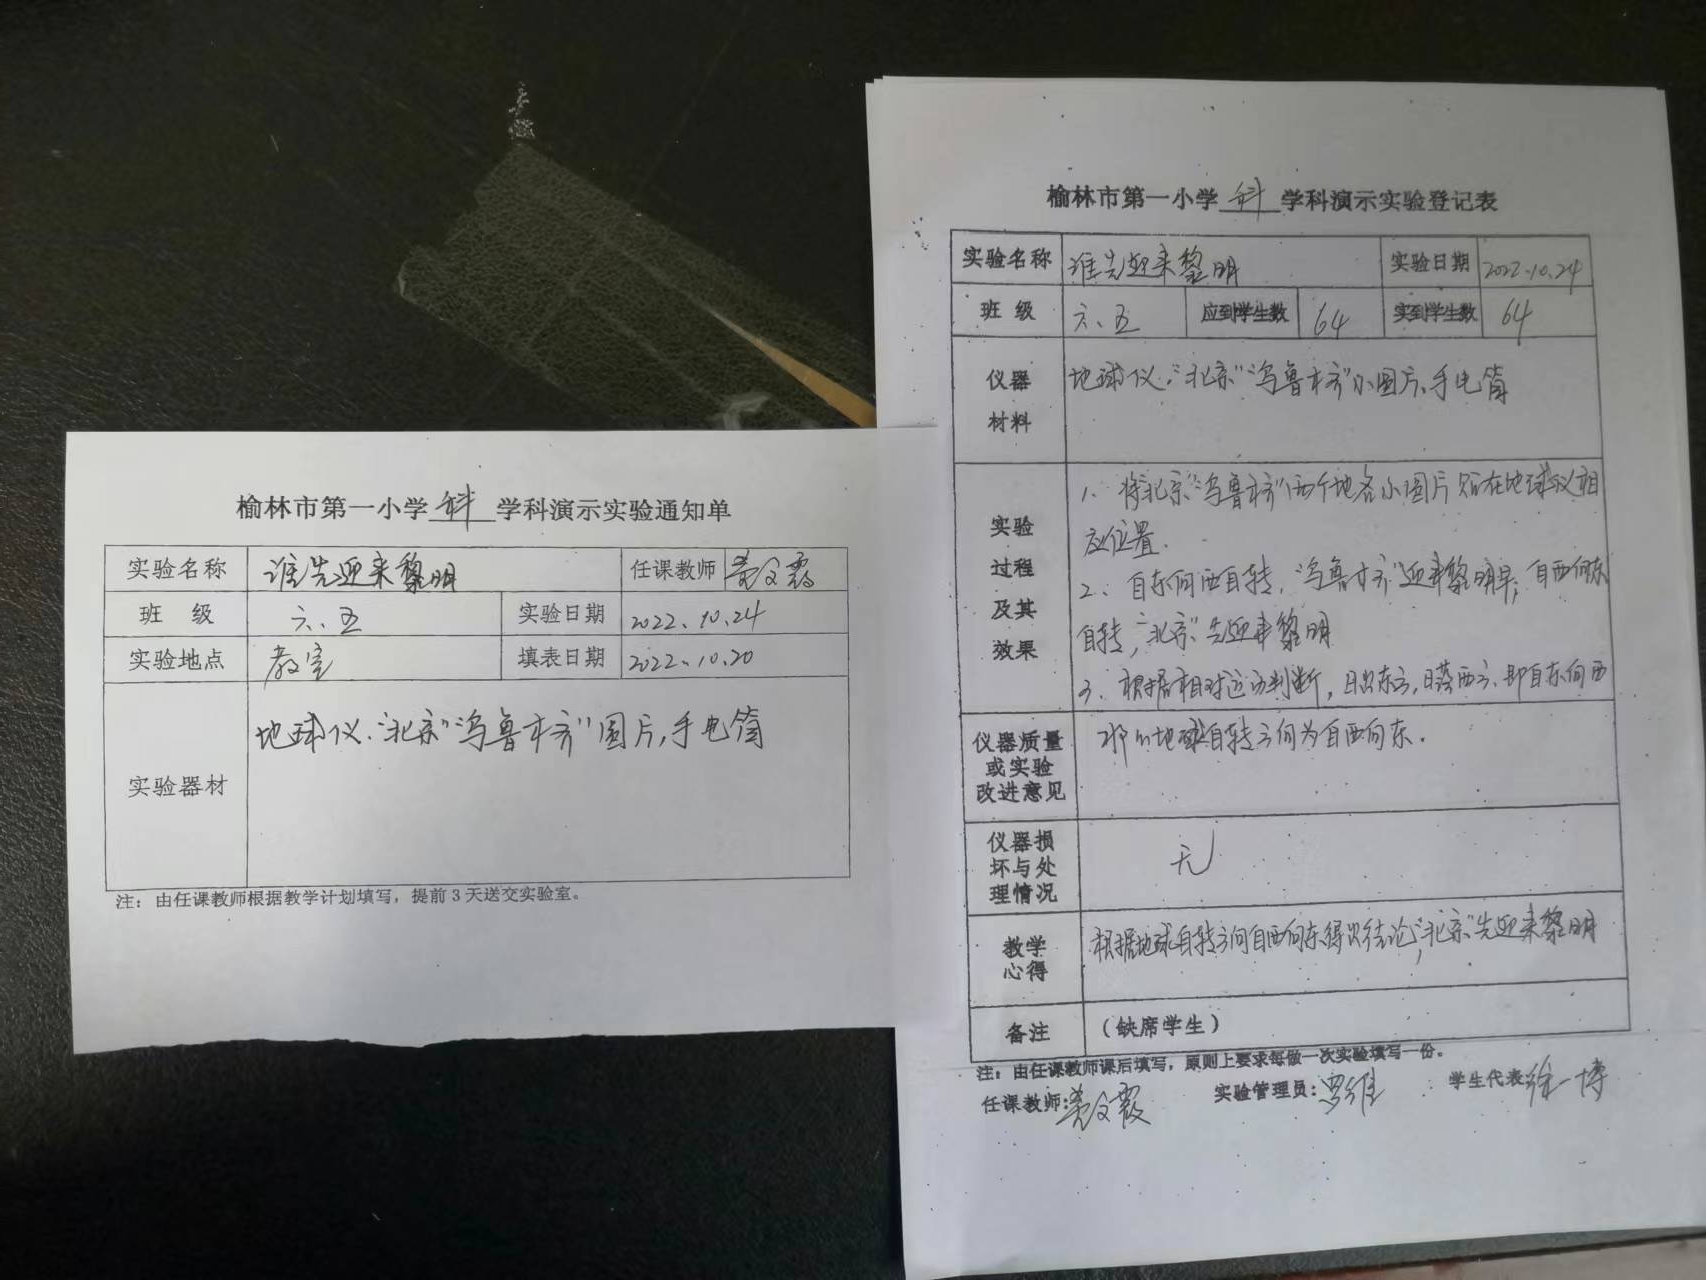 榆林市第一小学 科 学科演示实验通知单
实验名称 谁先迎来黎明 任课教师
班 级 六、五 实验日期 2022、10、24
实验地点 教室 填表日期 2022、10、20
实验器材 地球仪、“北京”“乌鲁木齐”图片,手电筒
注：由任课教师根据教学计划填写，提前3天送交实验室。
榆林市第一小学 科 学科演示实验登记表
实验名称 谁先迎来黎明 实验日期 2022、10、24
班 级 六、五 应到学生数 64 实到学生数 64
仪器
材料
地球仪、“北京”“乌鲁木齐”小图片,手电筒
实验
过程
及其
效果
1、将“北京”“乌鲁木齐”两个地名小图片贴在地球仪相
应位置.
2、自东向西自转,“乌鲁木齐”迎来黎明早;自西向东
自转,“北京”先迎来黎明
3、根据相对运动判断,日出东方,日落西方、即自东向西
仪器质量
或实验
改进意见
那么地球自转方向为自西向东.
仪器损
坏与处
理情况
无
教学
心得
根据地球自转方向自西向东得出结论,“北京”先迎来黎明
备注 （缺席学生）
注：由任课教师课后填写，原则上要求每做一次实验填写一份。
任课教师: 实验管理员: 罗维 学生代表 徐一博